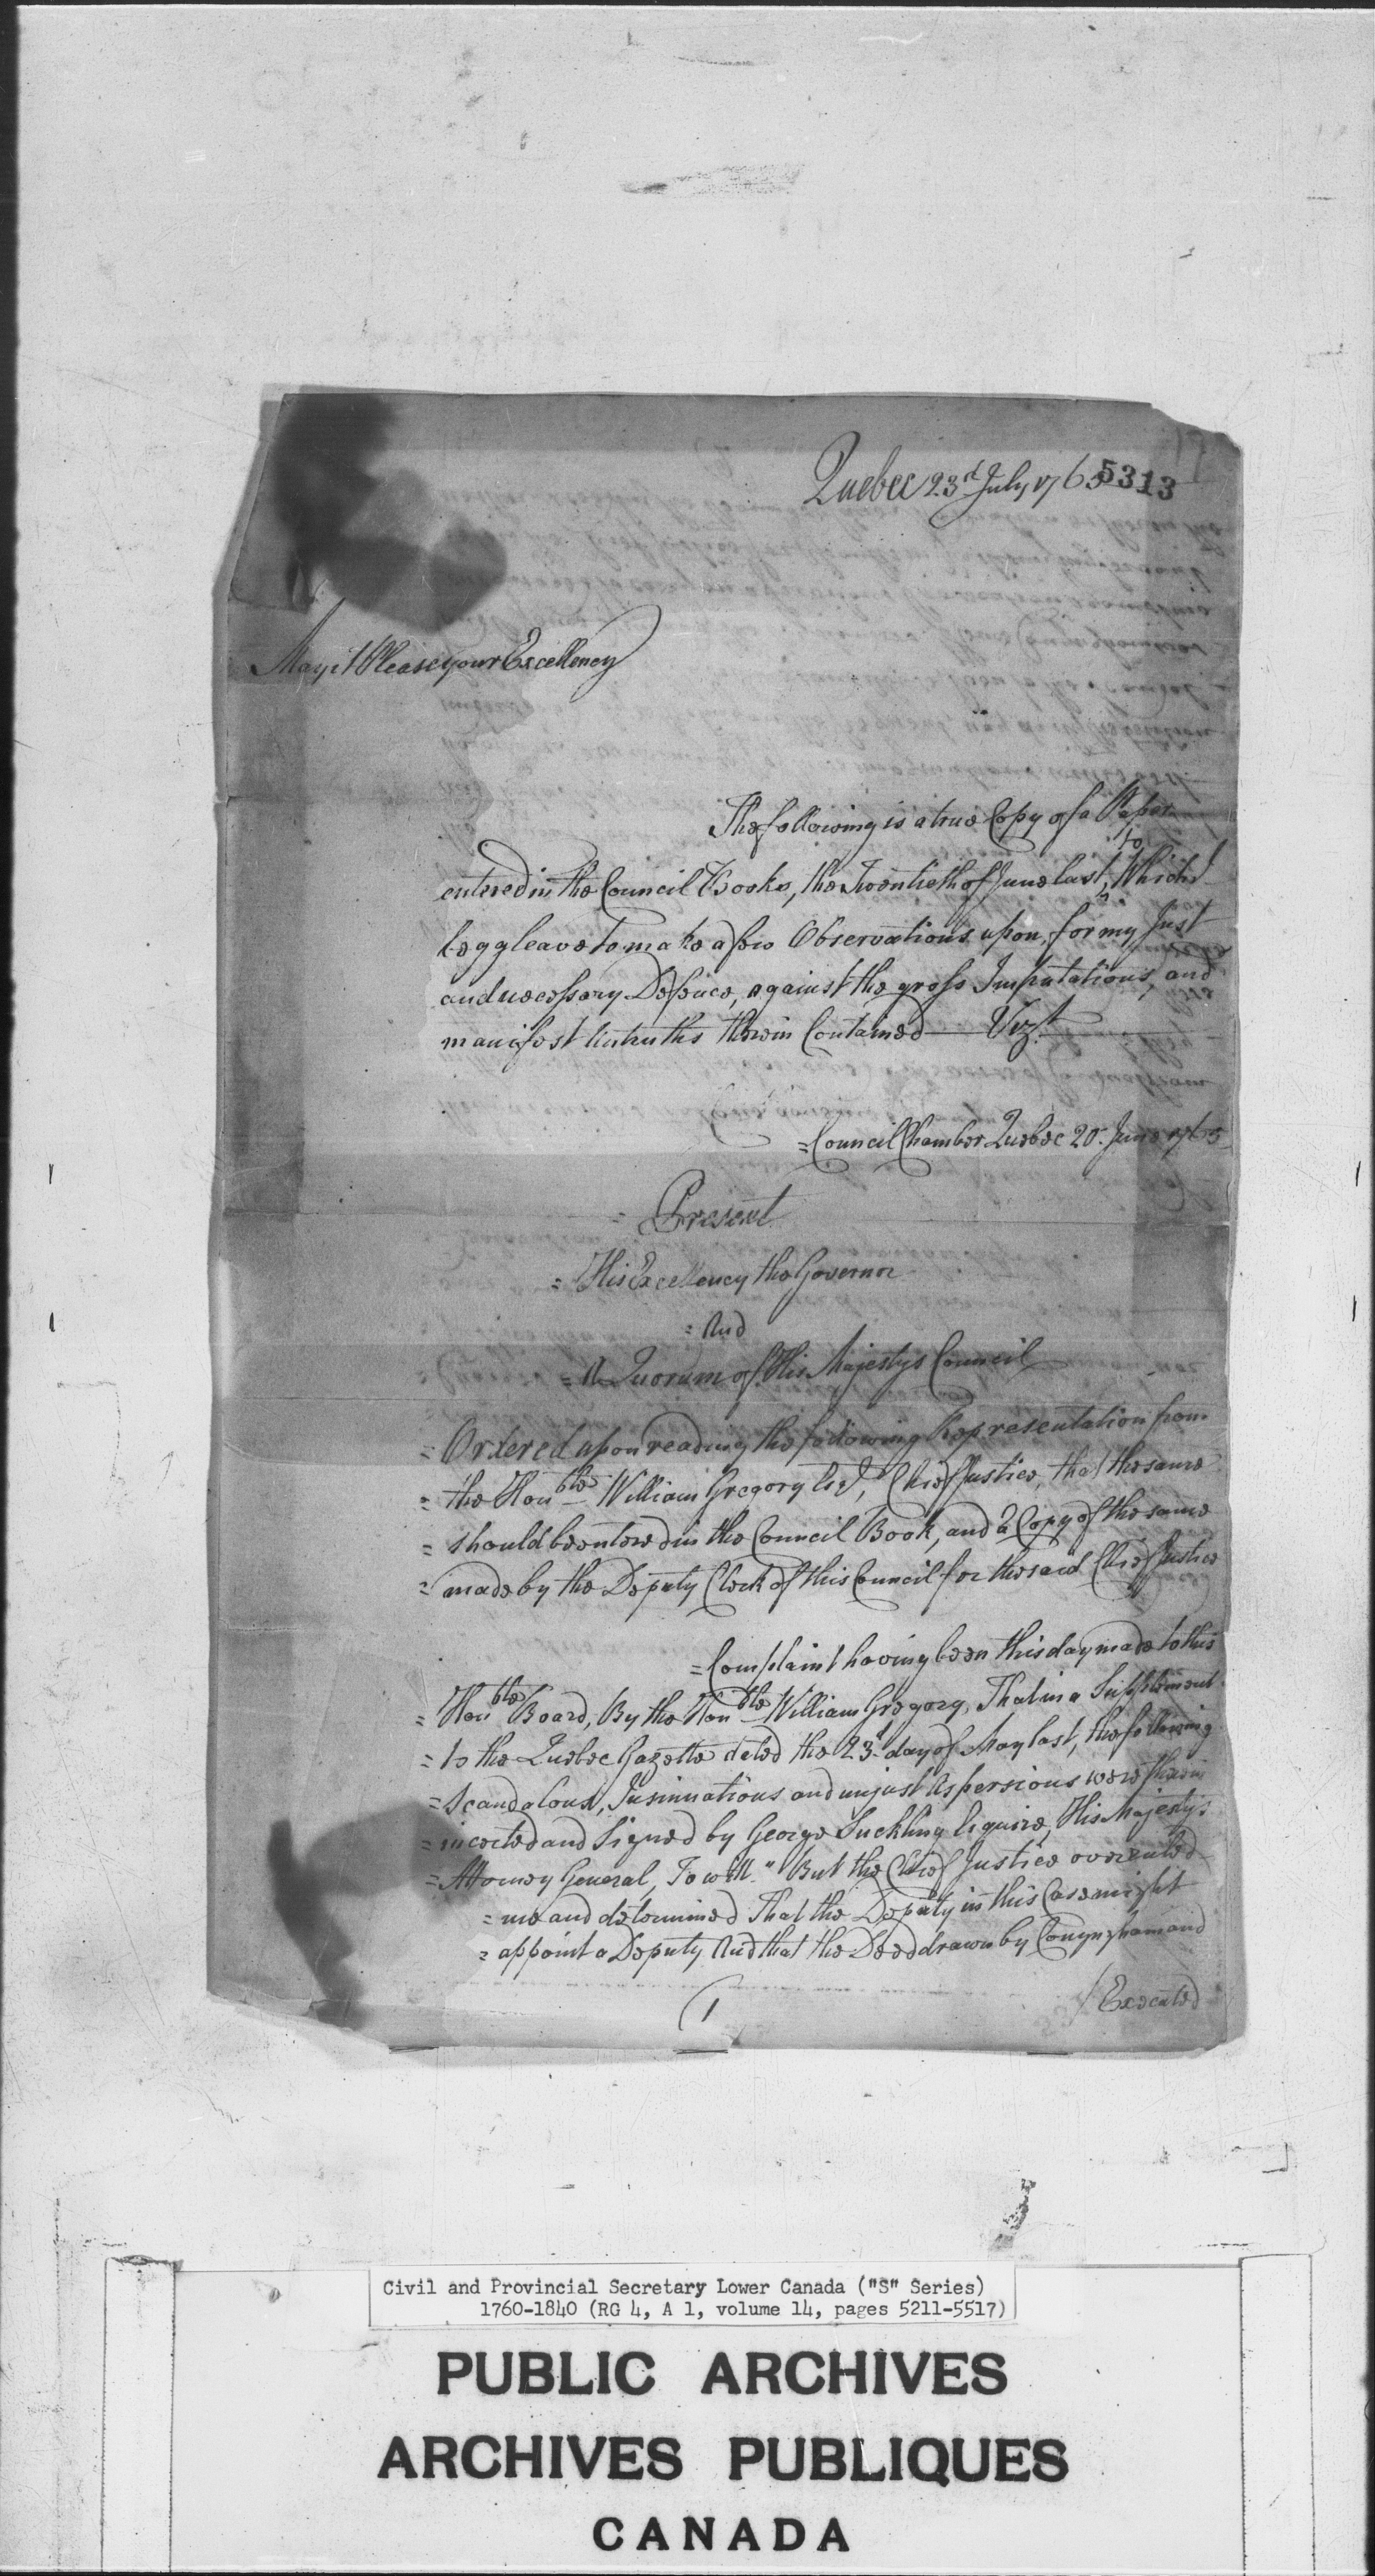 Quebec 23d July 1765
5313
May it Please your Excellency
The following is a true Copy of a Paper
entered in the Council Books, the Twentieth of June last, to Which I
begg leave to make a few Observations upon, for my Just
and necessary Defence, against the gross Imputations, and
manifest Untruths therein Contained — Vizt
= Council Chamber Quebec 20. June 1765
= Present
= His Excellency the Governor
= And
= A Quorum of His Majestys Council
= Ordered upon reading the following Representation from
= the Honble William Gregory Esqr, Chief Justice, that the same
= should be entered in the Council Book, and a Copy of the same
= made by the Deputy Clerk of this Council for the said Chief Justice
= Complaint having been this day made to this
= Honble Board, By the Honble William Gregory, That in a Supplement
= to the Quebec Gazette dated the 23d day of May last, the following
= Scandalous, Insinuations and unjust Aspersions were therein
= incerted and Signed by George Suckling Esquire, His Majestys
= Attorney General, To witt. " But the Chief Justice overruled
= me and determined That the Deputy in this Case might
= appoint a Deputy And that the Deed drawn by Conyngham and
/ Executed
(1
Civil and Provincial Secretary Lower Canada ("S" Series)
1760-1840 (RG 4, A 1, volume 14, pages 5211-5517)
PUBLIC ARCHIVES
ARCHIVES PUBLIQUES
CANADA